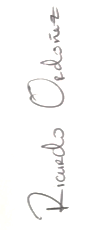 Ricardo Ordoñez